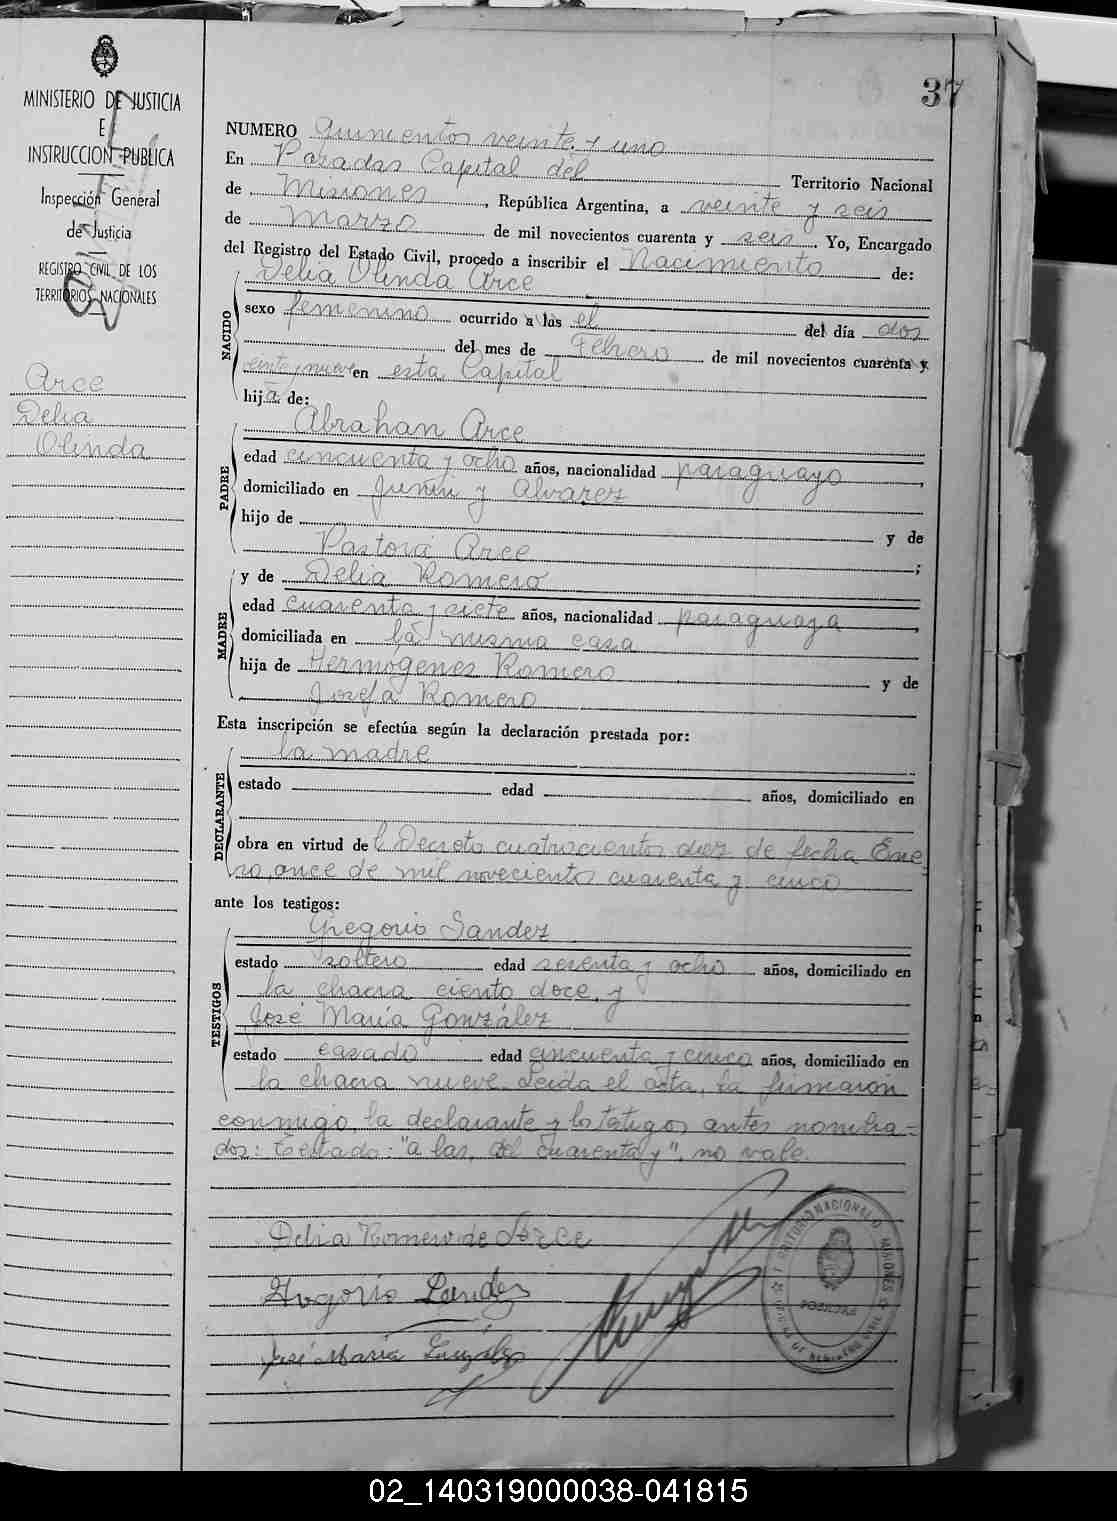 37
MINISTERIO DE JUSTICIA
E
INSTRUCCION PUBLICA
Inspección General
de Justicia
REGISTRO CIVIL DE LOS
TERRITORIOS NACIONALES
Arce
Delia
Olinda
NUMERO Quinientos veinte y uno
En Posadas Capital del Territorio Nacional
de Misiones, República Argentina, a veinte y seis
de Marzo de mil novecientos cuarenta y seis. Yo, Encargado
del Registro del Estado Civil, procedo a inscribir el Nacimiento de:
NACIDO
Delia Olinda Arce
sexo femenino ocurrido a las el del día dos
del mes de Febrero de mil novecientos cuarenta y
veinte y nueve en esta Capital
hija de:
PADRE
Abrahan Arce
edad cincuenta y ocho años, nacionalidad paraguayo,
domiciliado en Junin y Alvarez
hijo de y de
Pastora Arce;
MADRE
y de Delia Romero
edad cuarenta y siete años, nacionalidad paraguaya,
domiciliada en la misma casa
hija de Hermogenes Romero y de
Josefa Romero
Esta inscripción se efectúa según la declaración prestada por:
DECLARANTE
la madre
estado edad años, domiciliado en
obra en virtud del Decreto cuatrocientos diez de fecha Ene
ro, once de mil novecientos cuarenta y cinco
ante los testigos:
TESTIGOS
Gregorio Sandez
estado soltero edad sesenta y ocho años, domiciliado en
la chacra ciento doce, y
José María González
estado casado edad cincuenta y cinco años, domiciliado en
la chacra nueve. Leida el acta, la firmaron
conmigo, la declarante y los testigos antes nombra=
dos: Testado: "a las, del cuarenta y", no vale.
Delia Romero de Arce
Gregorio Sandez
José María González
02_140319000038-041815